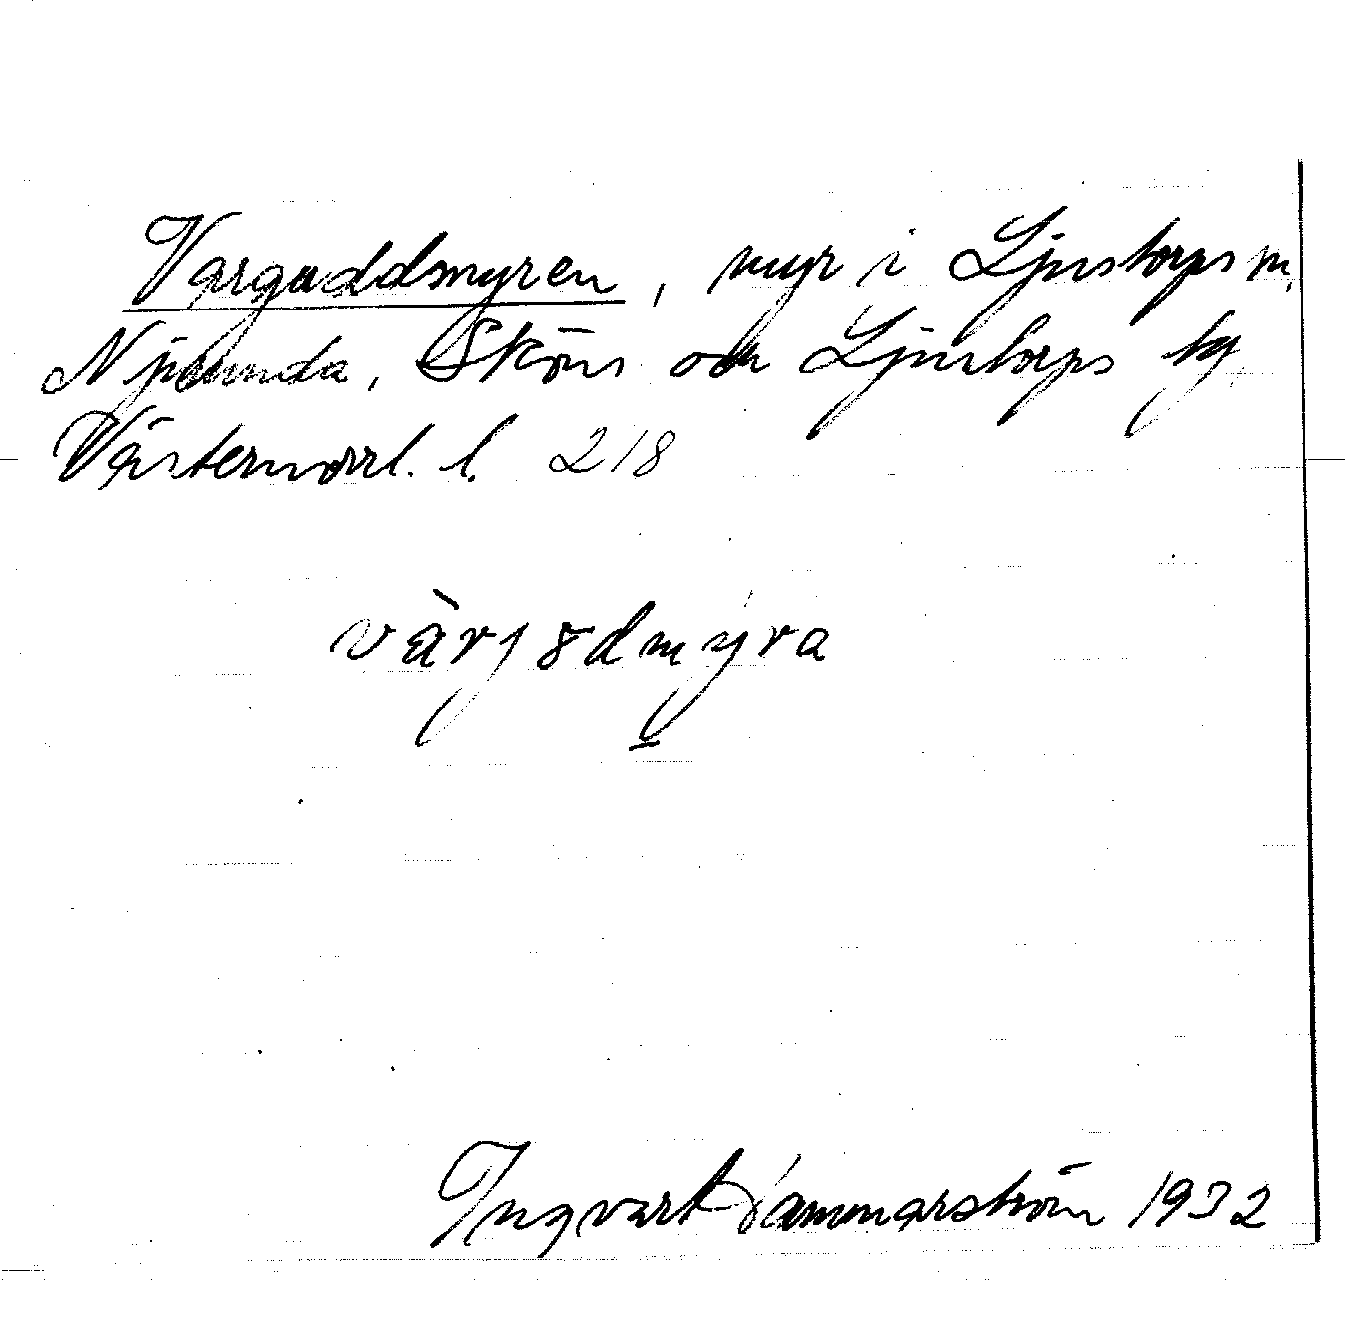 Vargaddsmyren, myr i Ljustorps sn,
Njurunda, Sköns och Ljustorps tg,
Västernorrl. l. 218
Ingvar Hammarström 1932